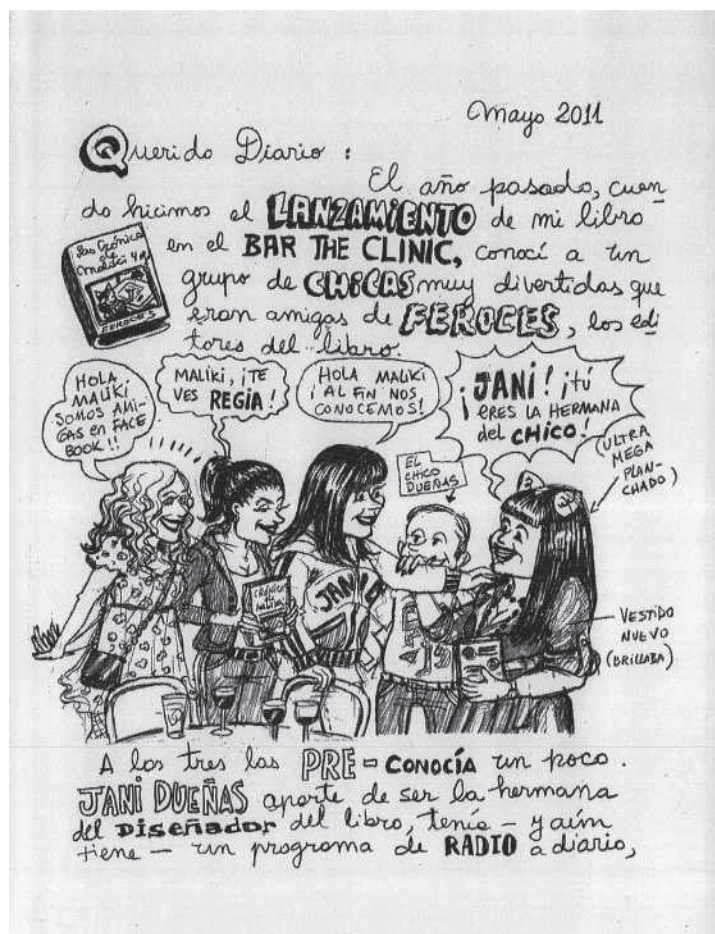 Mayo 2011
Querido Diario :
El año pasado, cuan
do hicimos el LANZAMIENTO de mi libro
en el BAR THE CLINIC, conocí a un
grupo de CHICAS muy divertidas que
eran amigas de FEROCES, los edi
tores del libro.
Las Crónicas
de
Maliki 4
FEROCES
HOLA
MALIKI
SOMOS AMI-
GAS en FACE
BOOK !!
MALIKI, ¡TE
VES REGIA!
HOLA MALIKI
¡AL FIN NOS
CONOCEMOS!
¡JANI! ¡tú
eres LA HERMANA
del CHICO!
(ULTRA
MEGA
PLAN-
CHADO)
EL
CHICO
DUEÑAS
CRÓNICAS
de
MALIKI
JANI D
VESTIDO
NUEVO
(BRILLABA)
A las tres las PRE-CONOCÍA un poco.
JANI DUEÑAS aparte de ser la hermana
del DISEÑADOR del libro, tenía - y aún
tiene - un programa de RADIO a diario,